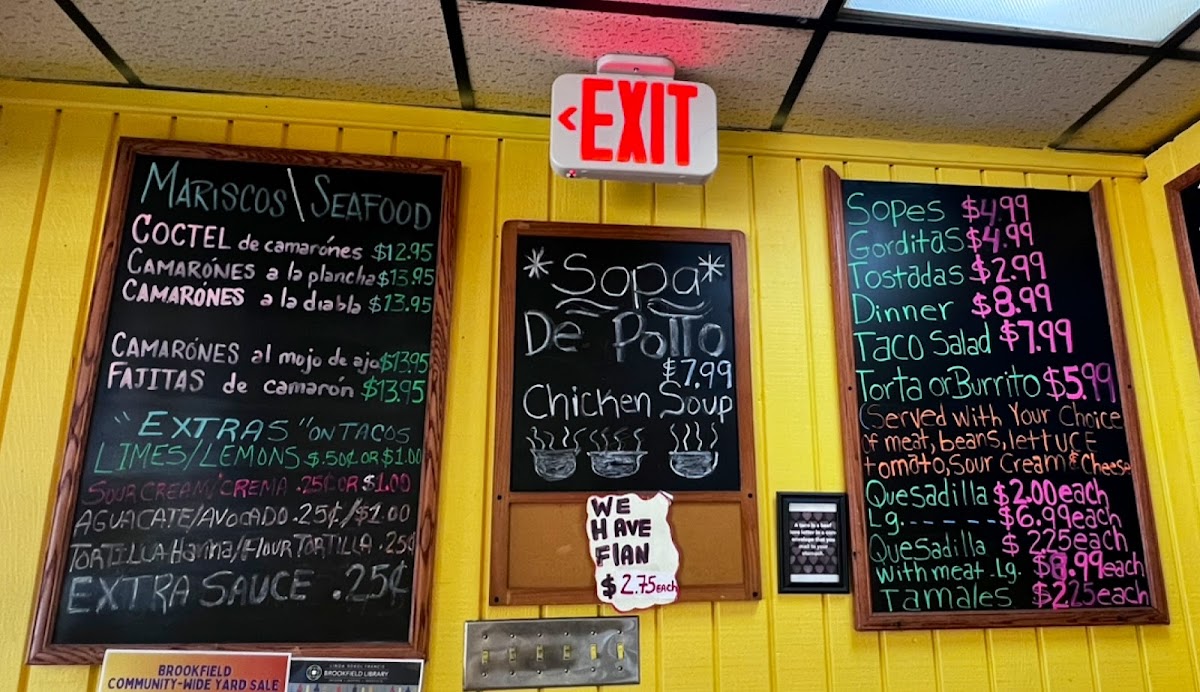 EXIT
MARISCOS\SEAFOOD
COCTEL de camarónes $12.95
CAMARÓNES a la plancha $13.95
CAMARÓNES a la diabla $13.95
CAMARÓNES al mojo de ajo $13.95
FAJITAS de camarón $13.95
"EXTRAS" ON TACOS
LIMES/LEMONS $.50¢ OR $1.00
SOUR CREAM/CREMA .25¢ OR $1.00
AGUACATE/AVOCADO .25¢/$1.00
TORTILLA Harina/FLOUR TORTILLA .25¢
EXTRA SAUCE .25¢
BROOKFIELD
COMMUNITY-WIDE YARD SALE
BROOKFIELD LIBRARY
Sopa
De Pollo
$7.99
Chicken Soup
WE
HAVE
FlAN
$2.75 EACH
A taco is a beef
love letter in a corn
envelope that you
mail to your
stomach.
Sopes $4.99
Gorditas $4.99
Tostadas $2.99
Dinner $8.99
Taco Salad $7.99
Torta or Burrito $5.99
(Served with Your Choice
of meat, beans, lettuce
tomato, Sour Cream & Cheese
Quesadilla $2.00 each
Lg. - - - - - - $6.99 each
Quesadilla $2.25 each
with meat Lg. .99 each
Tamales $2.25 each